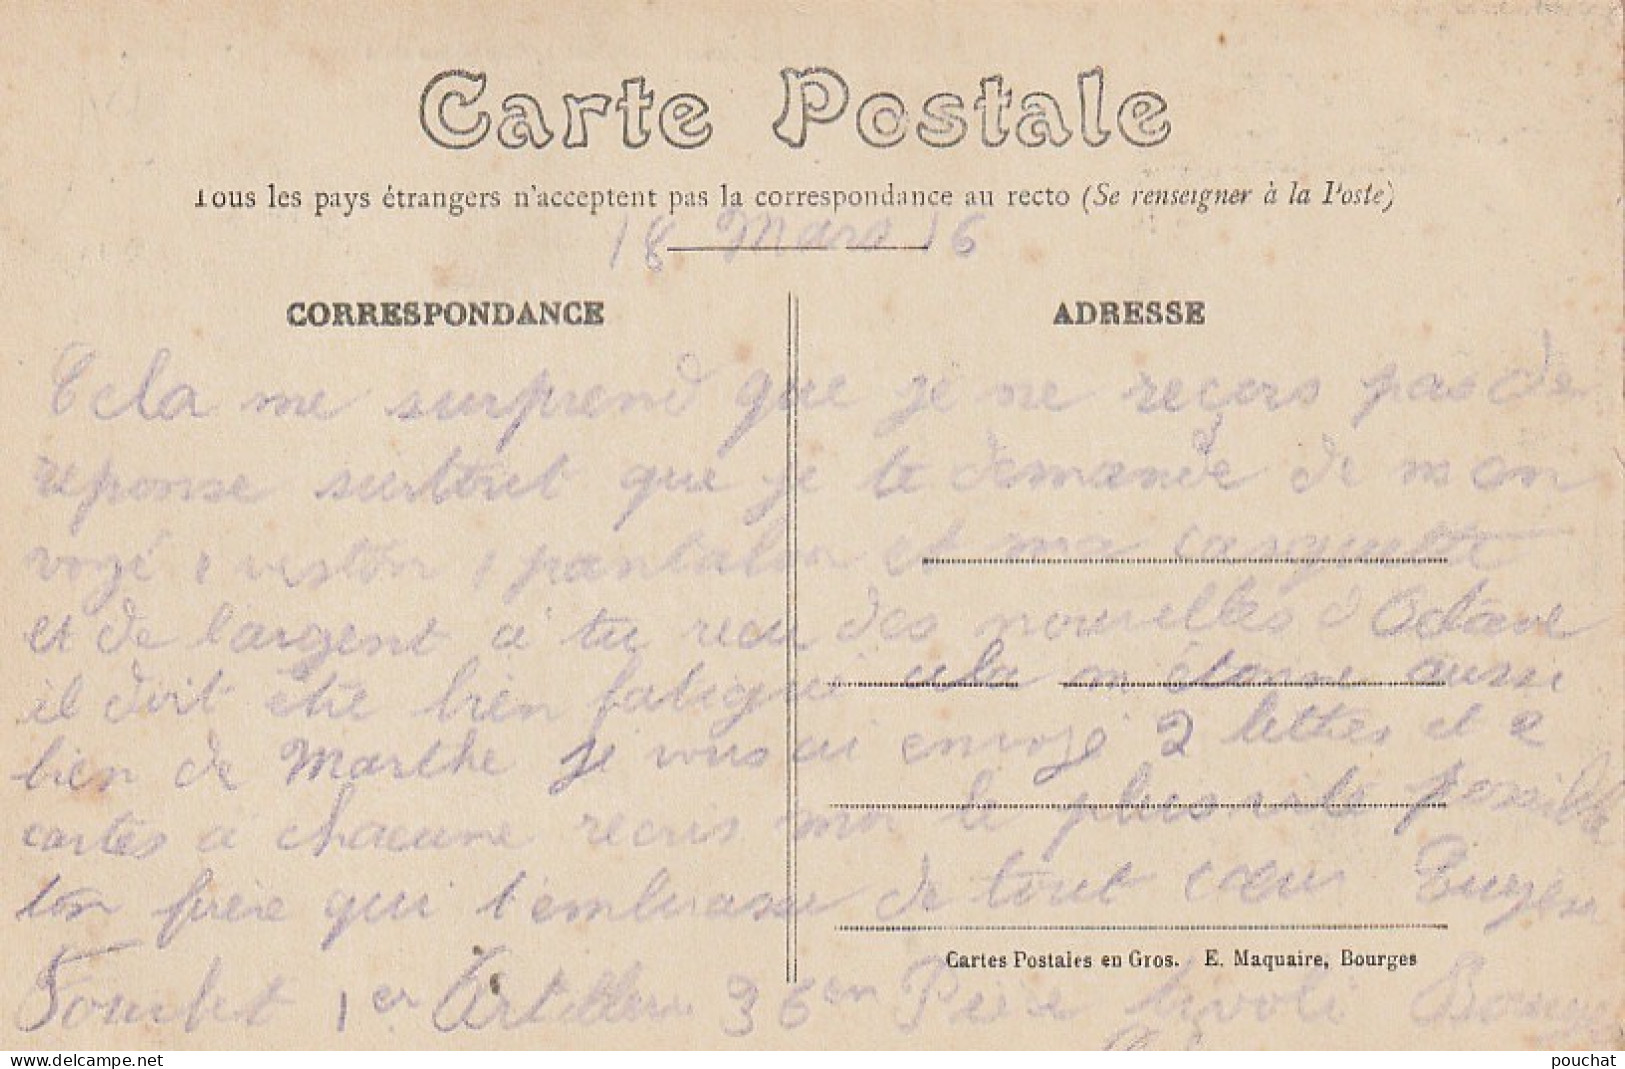 Carte Postale
Tous les pays étrangers n'acceptent pas la correspondance au recto (Se renseigner à la Poste)
18 Mars 16
CORRESPONDANCE
ADRESSE
Cela me surprend que je ne reçois pas de
reponse surtout que je te demande de m en
voyé 1 veston 1 pantalon et ma casquette
et de l'argent a tu recu des nouvelles d Octave
il doit être bien fatigué cela m étonne aussi
bien de Marthe je vous ai envoyé 2 lettres et 2
cartes a chacune recris moi le plus vite possible
ton frère qui t'embrasse de tout cœur Eugène
Cartes Postales en Gros. E. Maquaire, Bourges
1er Artillerie 36em Pièce tivoli
pouchat